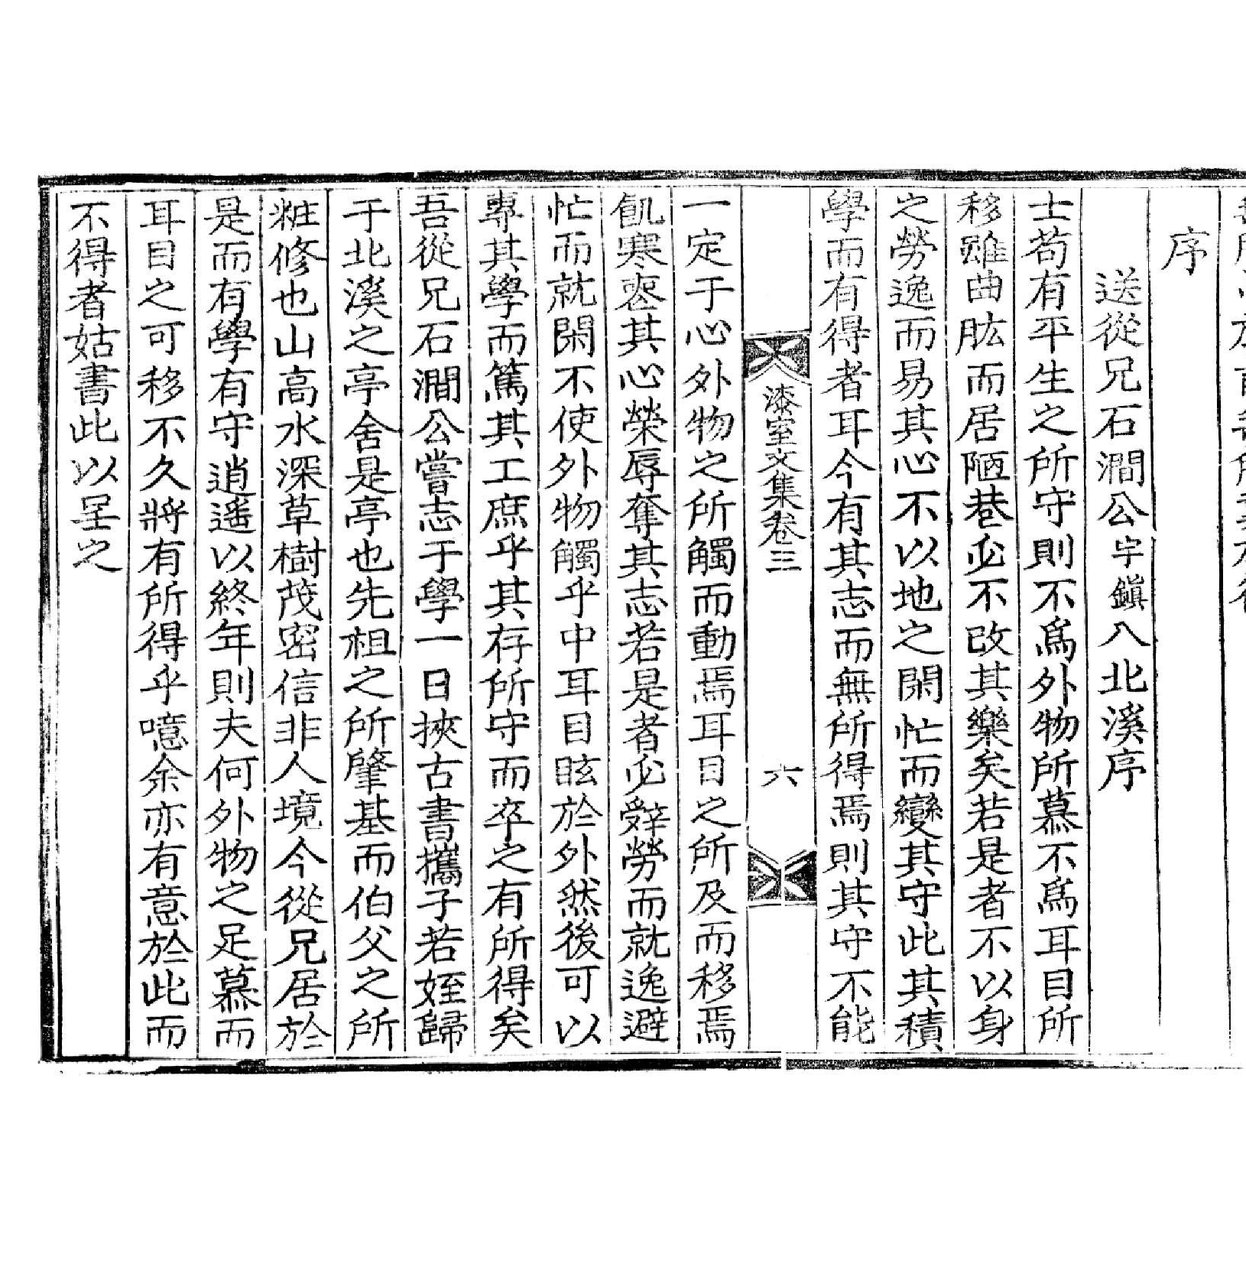 序
送從兄石澗公宇鎭入北溪序
士苟有平生之所守則不爲外物所慕不爲耳目所
移雖曲肱而居陋巷必不改其樂矣若是者不以身
之勞逸而易其心不以地之閑忙而變其守此其積
學而有得者耳今有其志而無所得焉則其守不能
漆室文集卷三
六
一定于心外物之所觸而動焉耳目之所及而移焉
飢寒慼其心榮辱奪其志若是者必辭勞而就逸避
忙而就閑不使外物觸乎中耳目眩於外然後可以
專其學而篤其工庶乎其存所守而卒之有所得矣
吾從兄石澗公嘗志于學一日挾古書攜子若姪歸
于北溪之亭舍是亭也先祖之所肇基而伯父之所
粧修也山高水深草樹茂密信非人境今從兄居於
是而有學有守逍遙以終年則夫何外物之足慕而
耳目之可移不久將有所得乎噫余亦有意於此而
不得者姑書此以呈之